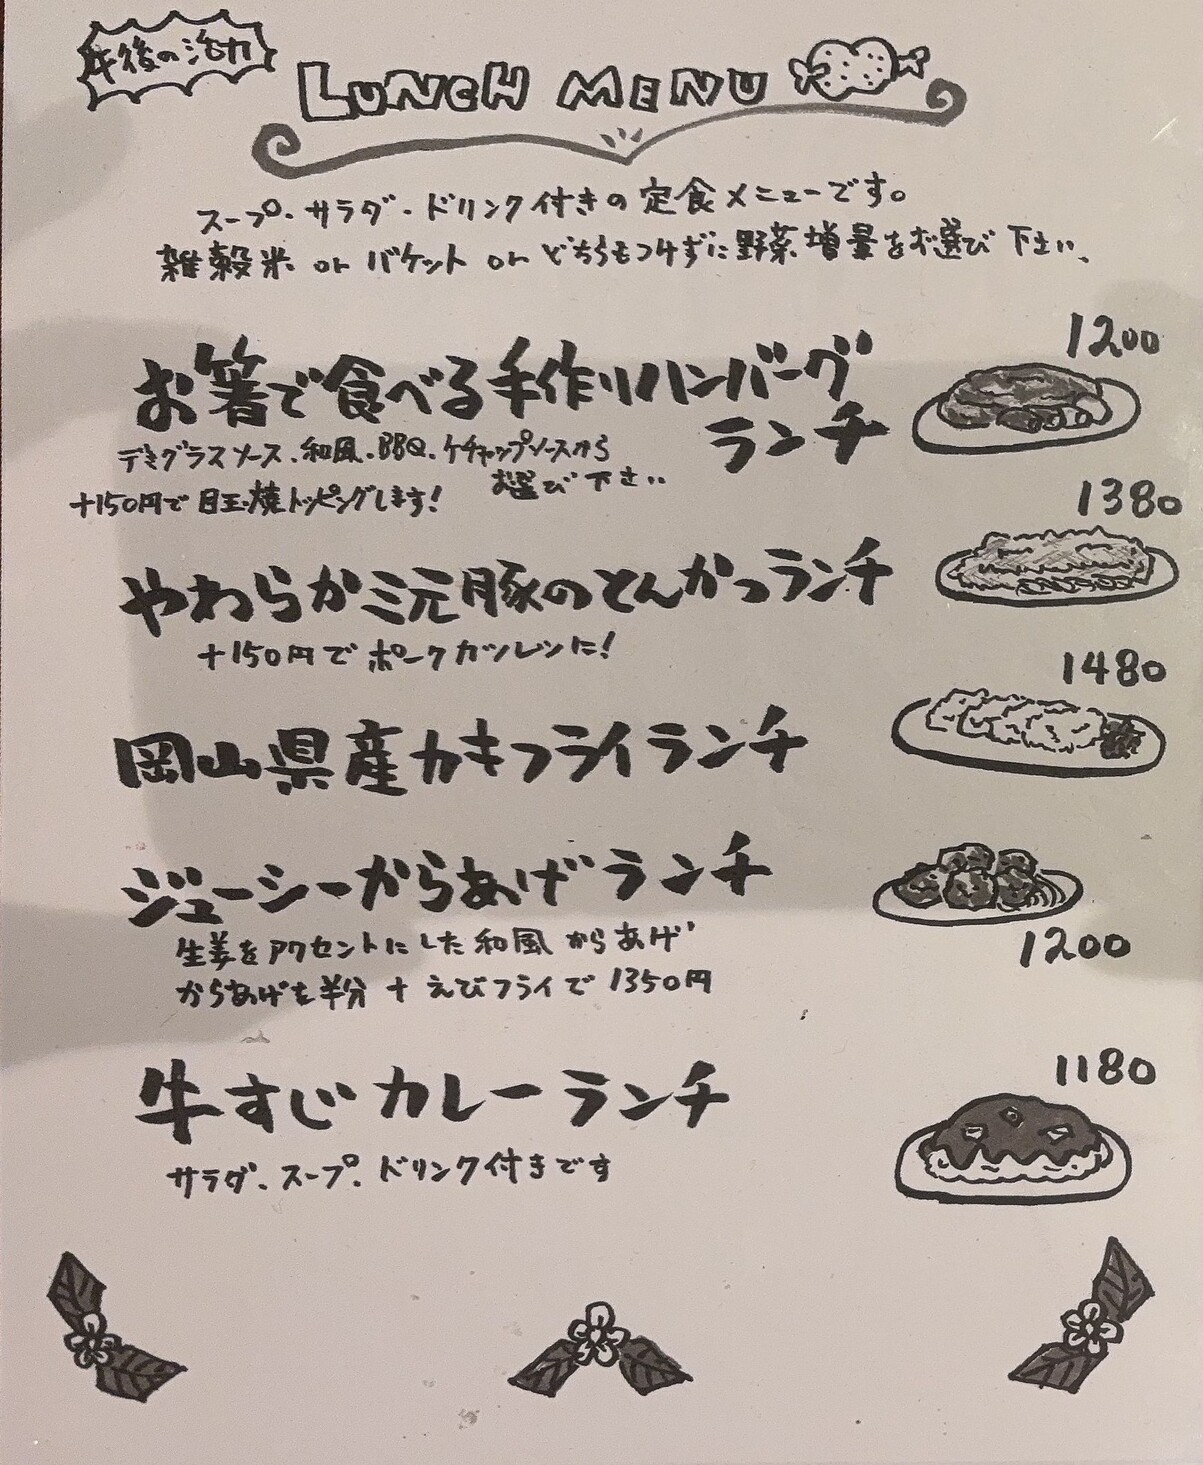 午後の活力
LUNCH MENU
スープ・サラダ・ドリンク付きの定食メニューです。
雑穀米 or バケット or どちらもつけずに野菜増量をお選び下さい、
1200
お箸で食べる手作りハンバーグ
ランチ
デミグラスソース、和風、BBQ、ケチャップソースから
お選び下さい
+150円で目玉焼トッピングします!
1380
やわらか三元豚のとんかつランチ
+150円でポークカツレツに!
1480
岡山県産カキフライランチ
ジューシーからあげランチ
生姜をアクセントにした和風からあげ
1200
からあげを半分+えびフライで1350円
1180
牛すじカレーランチ
サラダ、スープ、ドリンク付きです